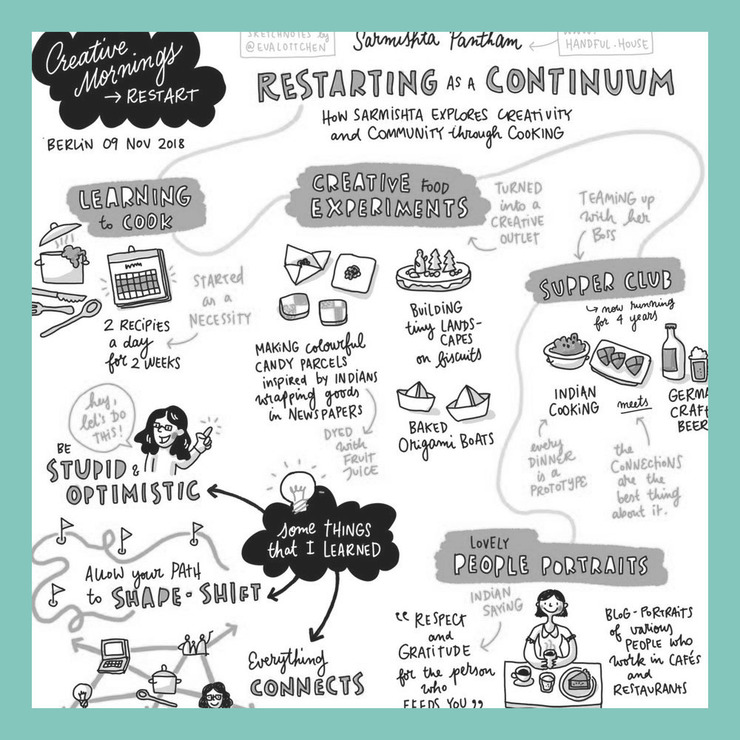 Creative
Mornings
→ RESTART
BERLIN 09 NOV 2018
SKETCHNOTES by
@EVALOTTCHEN
Sarmishta Pantham
HANDFUL.HOUSE
RESTARTING AS A CONTINUUM
HOW SARMISHTA EXPLORES CREATIVITY
and COMMUNITY through COOKING
LEARNING
to COOK
STARTED
as a
NECESSITY
2 RECIPIES
a day
for 2 WEEKS
CREATIVE FOOD
EXPERIMENTS
TURNED
into a
CREATIVE
OUTLET
MAKING colourful
CANDY PARCELS
inspired by INDIANS
wrapping goods
in NEWSPAPERS
DYED
with
FRUIT
JUICE
BUILDING
tiny LANDS-
CAPES
on biscuits
BAKED
Origami BOATS
TEAMING up
with her
BOSS
SUPPER CLUB
now running
for 4 years
INDIAN
COOKING
meets
GERMA
CRAF
BEER
every
DINNER
is a
PROTOTYPE
the
CONNECTIONS
are the
best thing
about it.
LOVELY
PEOPLE PORTRAITS
INDIAN
SAYING
"RESPECT
and
GRATITUDE
for the person
who
FEEDS YOU"
BLOG-PORTRAITS
of various
PEOPLE who
work in CAFÉS
and
RESTAURANTS
some THINGS
that I LEARNED
hey,
let's DO
THIS!
BE
STUPID &
OPTIMISTIC
ALLOW your PATH
to SHAPE-SHIFT
Everything
CONNECTS